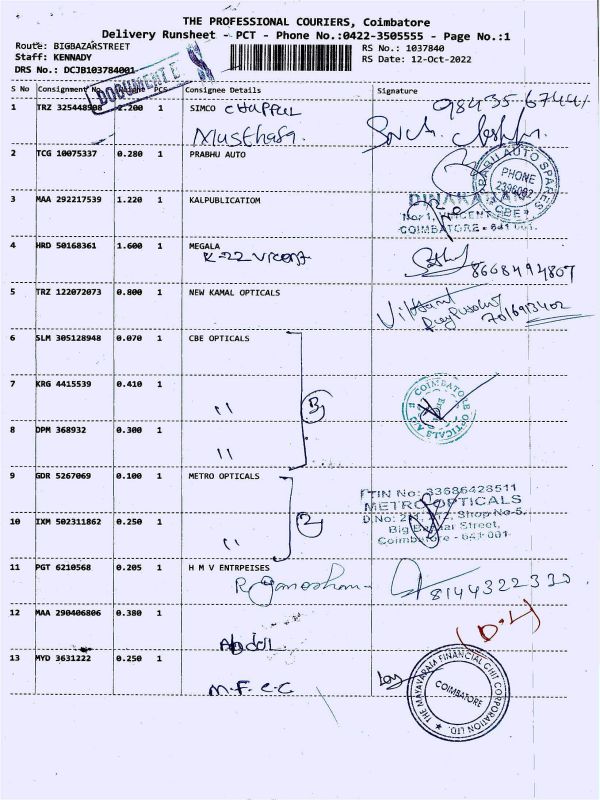 THE PROFESSIONAL COURIERS, Coimbatore
Delivery Runsheet - PCT - Phone No.:0422-3505555 - Page No.:1
Route: BIGBAZARSTREET
RS No.: 1037840
Staff: KENNADY
RS Date: 12-Oct-2022
DRS No.: DCJB103784001
DOCUMENTE
S No Consignment No PCS Consignee Details Signature
1 TRZ 325448908 2.200 1 SIMCO CHAPPUL
Musthafa.
2 TCG 10075337 0.280 1 PRABHU AUTO
BABU AUTO SPARES PHONE 2396082 CBE
3 MAA 292217539 1.220 1 KALPUBLICATIOM
DINAKARAN
COIMBATORE - 641 001.
4 HRD 50168361 1.600 1 MEGALA
8668494807
5 TRZ 122072073 0.800 1 NEW KAMAL OPTICALS
6 SLM 305128948 0.070 1 CBE OPTICALS
7 KRG 4415539 0.410 1 " 3
COIMBATORE OPTICALS
8 DPM 368932 0.300 1 "
9 GDR 5267069 0.100 1 METRO OPTICALS
TIN No: 33686428511
METRO OPTICALS
10 IXM 502311862 0.250 1 " 2
D.No: Shop No-5,
Big Bazaar Street,
Coimbatore - 641 001
11 PGT 6210568 0.205 1 H M V ENTRPEISES
8144322330
12 MAA 290406806 0.380 1
Abdul
13 MYD 3631222 0.250 1
M.F.C.C
THE MAYAVARAM FINANCIAL CHIT CORPORATION LTD. COIMBATORE